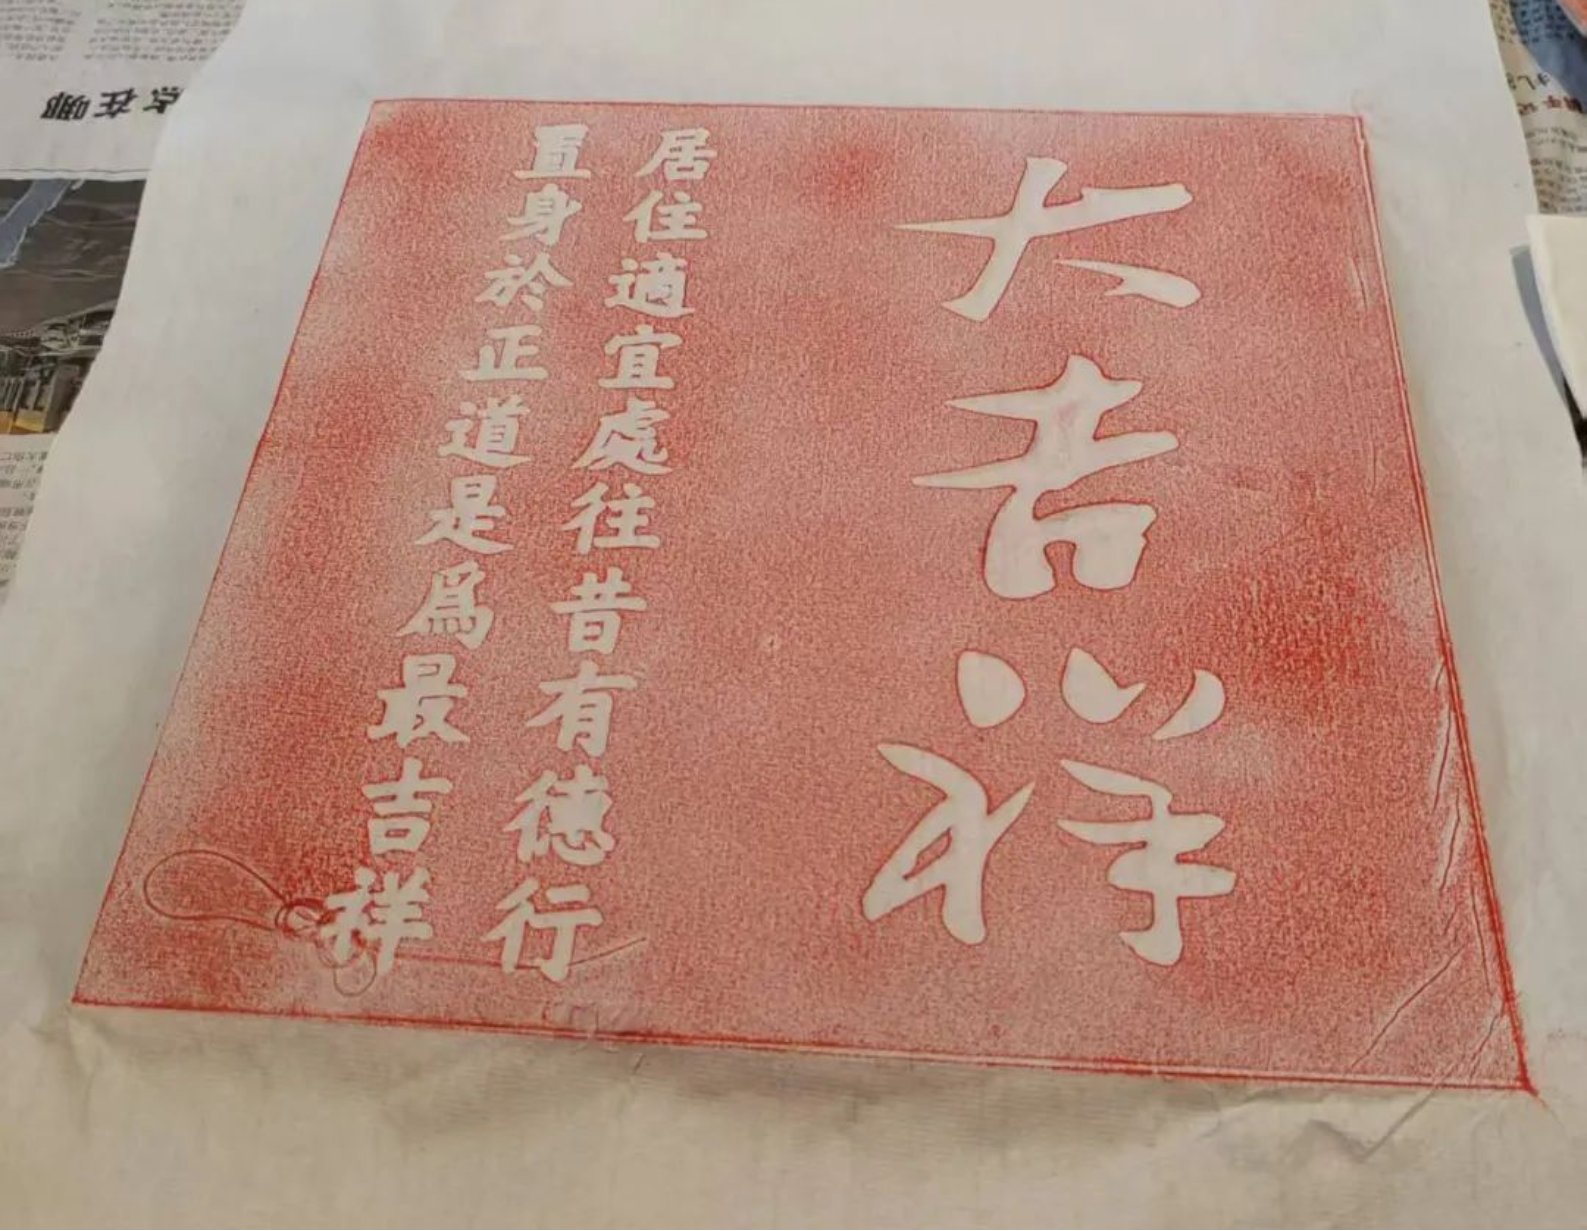 大吉祥
居住適宜處往昔有德行
置身於正道是爲最吉祥
点在哪